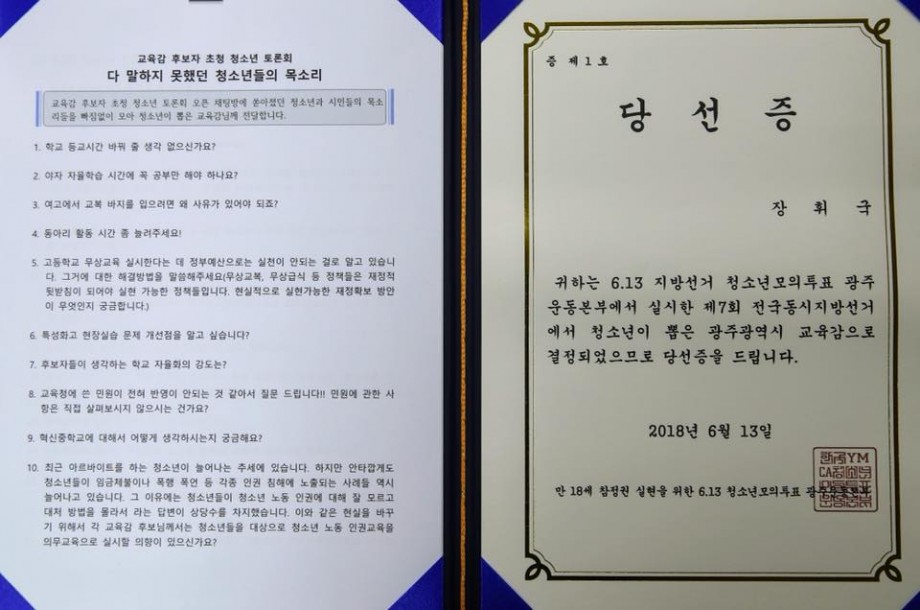 교육감 후보자 초청 청소년 토론회
다 말하지 못했던 청소년들의 목소리
교육감 후보자 초청 청소년 토론회 오픈 채팅방에 쏟아졌던 청소년과 시민들의 목소
리들을 빠짐없이 모아 청소년이 뽑은 교육감님께 전달합니다.
1. 학교 등교시간 바꿔 줄 생각 없으신가요?
2. 야자 자율학습 시간에 꼭 공부만 해야 하나요?
3. 여고에서 교복 바지를 입으려면 왜 사유가 있어야 되죠?
4. 동아리 활동 시간 좀 늘려주세요!
5. 고등학교 무상교육 실시한다는 데 정부예산으로는 실천이 안되는 걸로 알고 있습니
다. 그거에 대한 해결방법을 말씀해주세요(무상교복, 무상급식 등 정책들은 재정적
뒷받침이 되어야 실현 가능한 정책들입니다. 현실적으로 실현가능한 재정확보 방안
이 무엇인지 궁금합니다.)
6. 특성화고 현장실습 문제 개선점을 알고 싶습니다?
7. 후보자들이 생각하는 학교 자율화의 강도는?
8. 교육청에 쓴 민원이 전혀 반영이 안되는 것 같아서 질문 드립니다!! 민원에 관한 사
항은 직접 살펴보시지 않으시는 건가요?
9. 혁신중학교에 대해서 어떻게 생각하시는지 궁금해요?
10. 최근 아르바이트를 하는 청소년이 늘어나는 추세에 있습니다. 하지만 안타깝게도
청소년들이 임금체불이나 폭행 폭언 등 각종 인권 침해에 노출되는 사례들 역시
늘어나고 있습니다. 그 이유에는 청소년들이 청소년 노동 인권에 대해 잘 모르고
대처 방법을 몰라서 라는 답변이 상당수를 차지했습니다. 이와 같은 현실을 바꾸
기 위해서 각 교육감 후보님께서는 청소년들을 대상으로 청소년 노동 인권교육을
의무교육으로 실시할 의향이 있으신가요?
증 제 1 호
당 선 증
장 휘 국
귀하는 6.13 지방선거 청소년모의투표 광주
운동본부에서 실시한 제7회 전국동시지방선거
에서 청소년이 뽑은 광주광역시 교육감으로
결정되었으므로 당선증을 드립니다.
2018년 6월 13일
만 18세 참정권 실현을 위한 6.13 청소년모의투표 광주운동본부
YM
CA